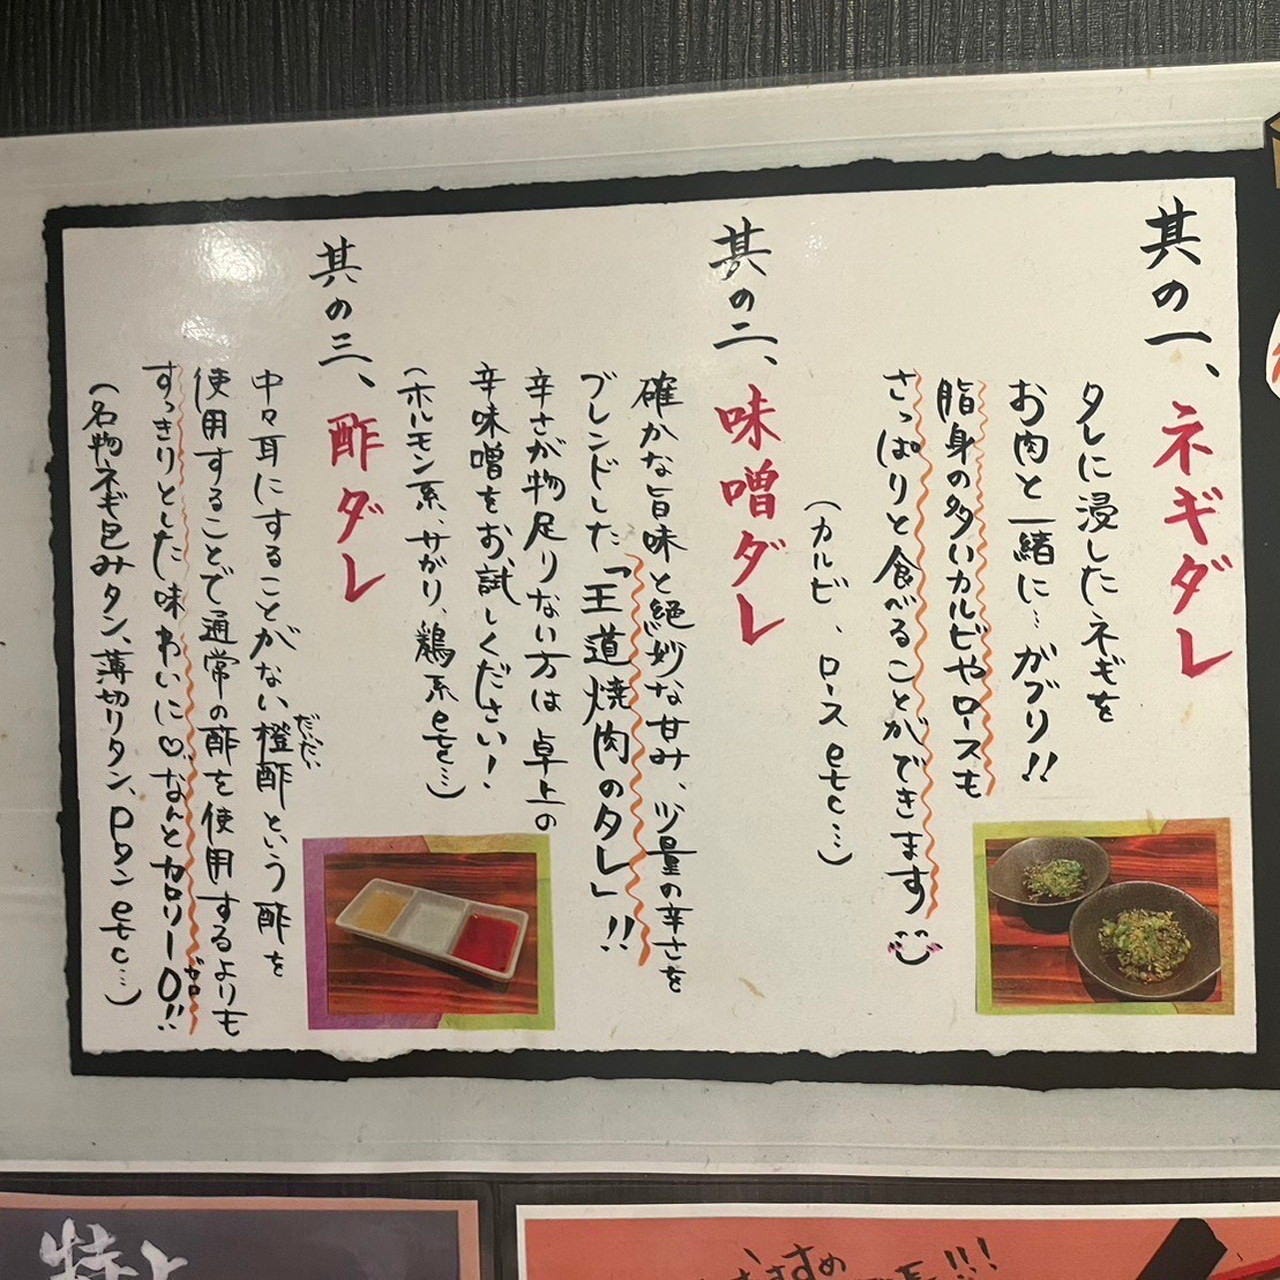 其の一、ネギダレ
タレに浸したネギを
お肉と一緒に…ガブリ!!
脂身の多いカルビやロースも
さっぱりと食べることができます
(カルビ、ロースetc…)
其の二、味噌ダレ
確かな旨味と絶妙な甘み、少量の辛さを
ブレンドした「王道焼肉のタレ」!!
辛さが物足りない方は卓上の
辛味噌をお試しください!
(ホルモン系、サガリ、鶏系etc…)
其の三、酢ダレ
中々耳にすることがない橙酢という酢を
だいだい
使用することで通常の酢を使用するよりも
すっきりとした味わいに♡なんとカロリー0!!
ゼロ
(名物ネギ包みタン、薄切りタン、Pタンetc…)
特上
おすすめ